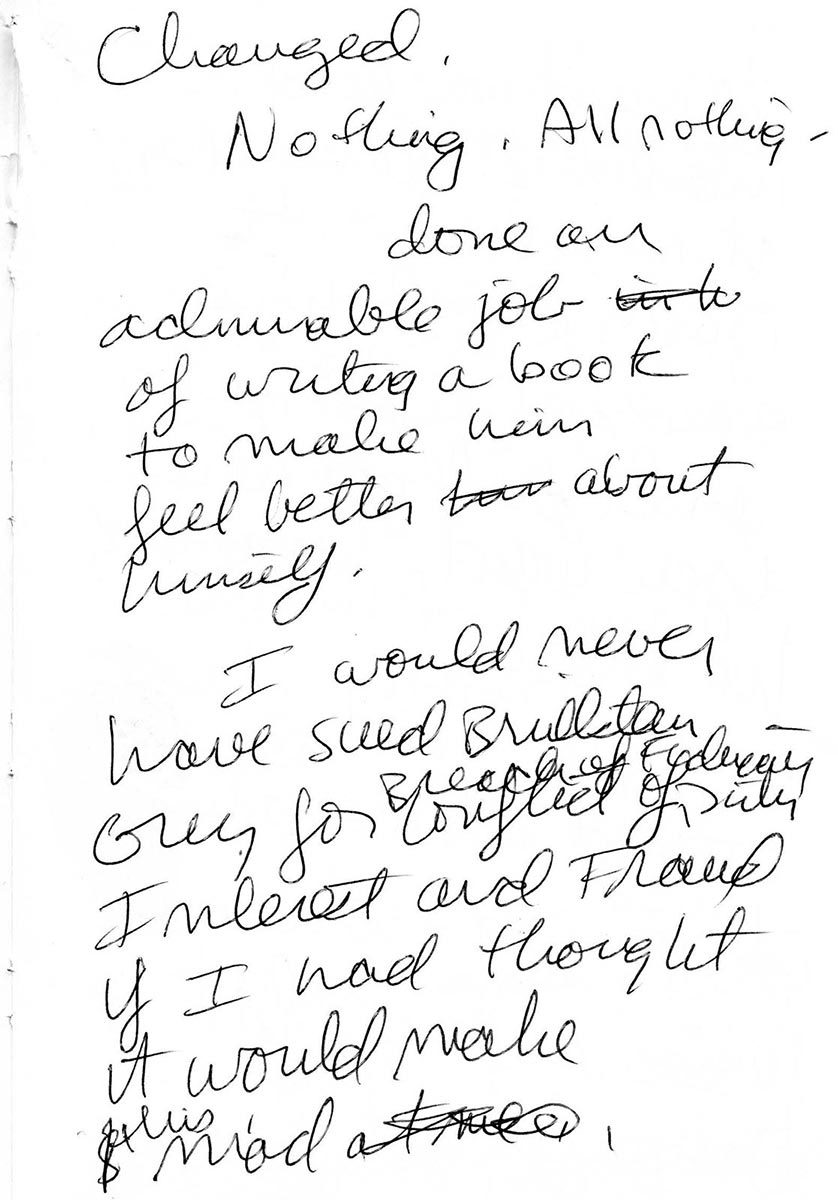 Changed.
Nothing. All nothing -
done an
admirable job
of writing a book
to make him
feel better about
himself.
I would never
have sued Brillstein
Breach of Fiduciary
Grey for Conflict of Duty
Interest and Fraud
if I had thought
it would make
mad